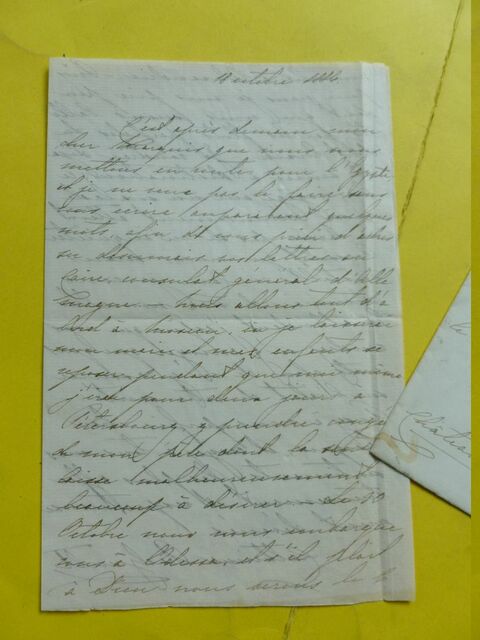 octobre 1886
C'est après demain mon
cher Marquis que nous nous
mettons en route pour l'Egypte
et je ne veux pas le faire sans
vous écrire auparavant quelques
mots, afin de vous prier d'adres
ser désormais vos lettres au
Caire, consulat général d'Alle
magne. – Nous allons tout d'a
bord à Moscou, où je laisserai
mon mari et mes enfants se
reposer pendant que moi même
j'irai pour deux jours à
Pétersbourg y prendre congé
de mon père dont la santé
laisse malheureusement
beaucoup à désirer – Le
Octobre nous nous embarque
rons à Odessa, et s'il plaît
à Dieu nous serons le
Château